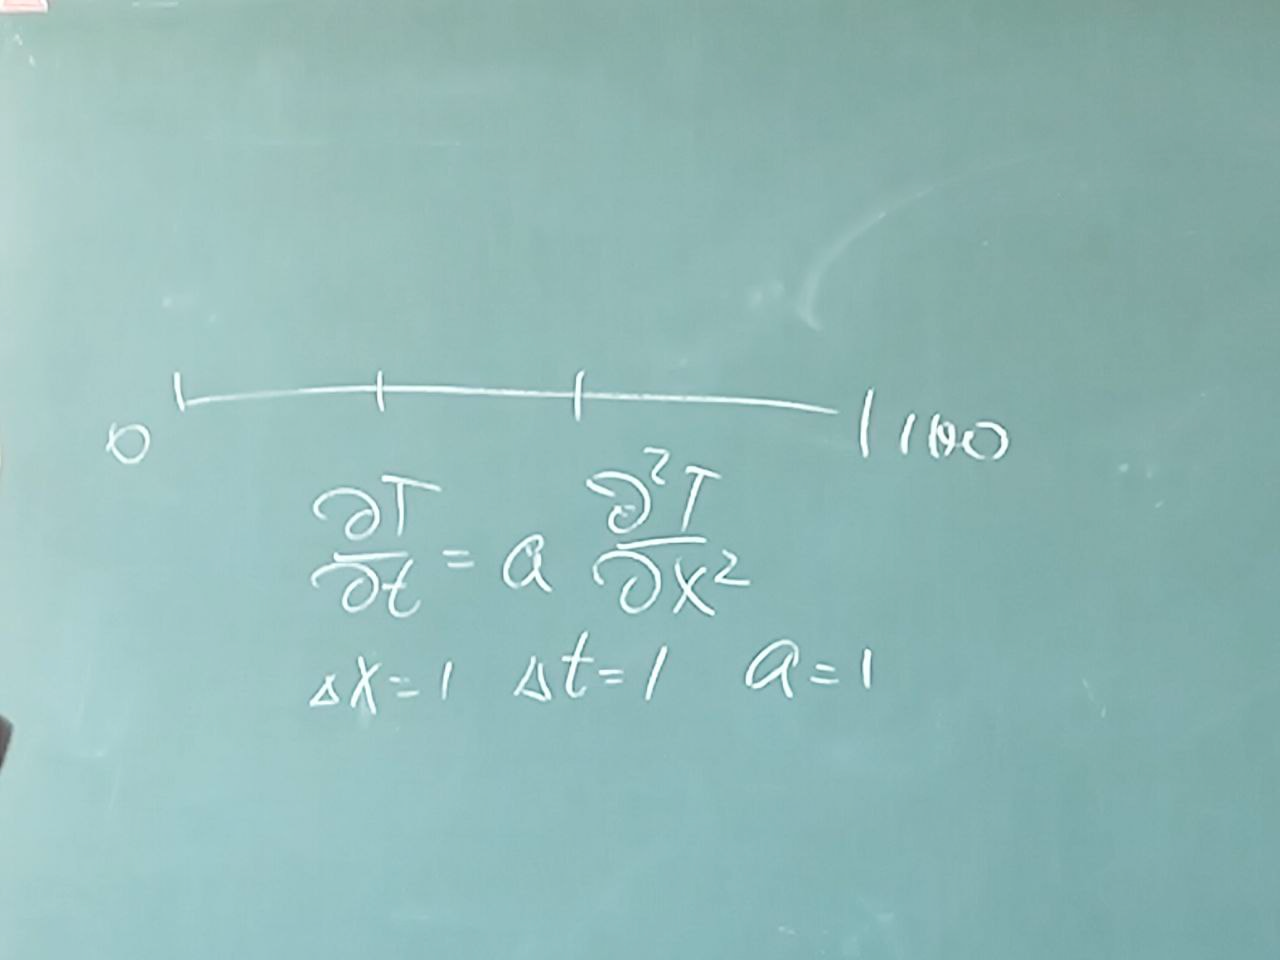 0 100
∂T/∂t = a ∂²T/∂x²
Δx=1 Δt=1 a=1